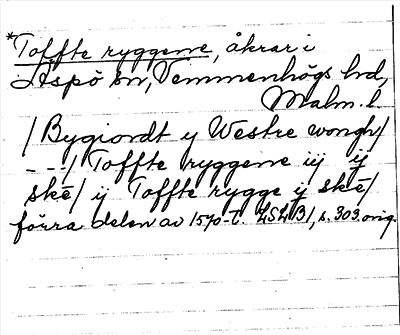 *Toffte ryggerne, åkrar i
Äspö sn, Vemmenhögs hd,
Malm. l.
/Bygiordt y Westre wongh/
- - -/ Toffte ryggerne iij ÿ
skē/ ij Toffte rygge ÿ skē/
förra delen av 1570-t. LSLB1, s. 303. orig.